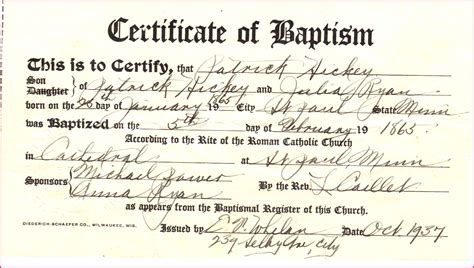 Certificate of Baptism
This is to Certify, that Patrick Hickey
Son Daughter } of Patrick Hickey and Julia Ryan
born on the 26th day of January 19 1865 City St Paul State Minn
was Baptized on the 5th day of February 19 1865
According to the Rite of the Roman Catholic Church
in Cathedral at St Paul Minn
Sponsors { Michael Power By the Rev. L Caillet
Anna Ryan
as appears from the Baptismal Register of this Church.
DIEDERICH-SCHAEFER CO., MILWAUKEE, WIS. Issued by E. Whelan Date Oct. 1937
239 Selby Ave, City